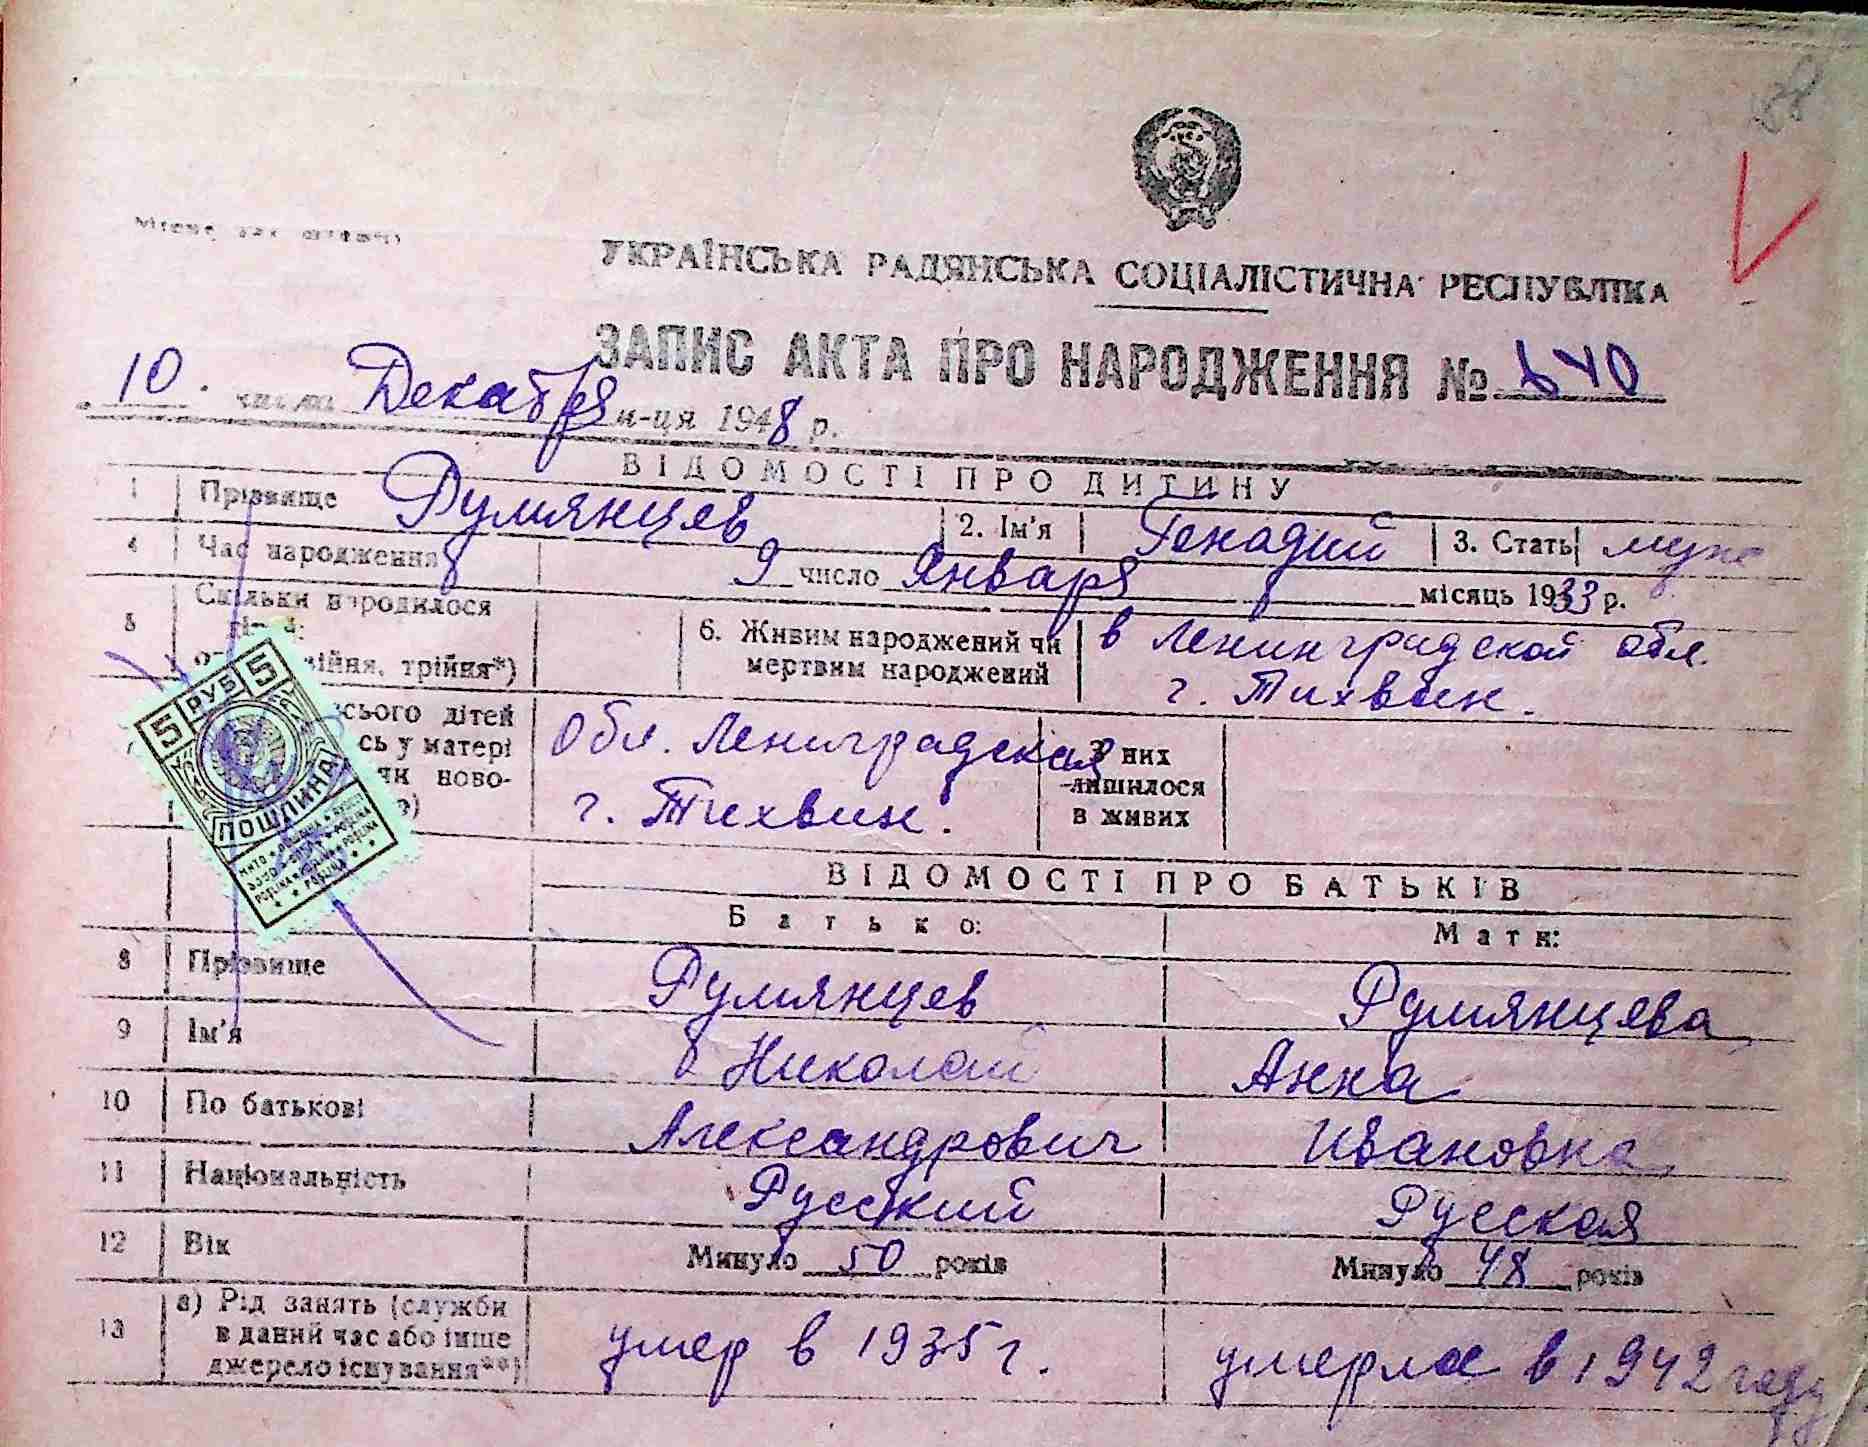 88
УКРАЇНСЬКА РАДЯНСЬКА СОЦІАЛІСТИЧНА РЕСПУБЛІКА
ЗАПИС АКТА ПРО НАРОДЖЕННЯ № 640
10. числа Декабря м-ця 1948 р.
ВІДОМОСТІ ПРО ДИТИНУ
1 Прізвище Румянцев 2. Ім'я Генадий 3. Стать муж
4 Час народження 9 число Января місяць 1933 р.
5 Скільки народилося
6. Живим народжений чи мертвим народжений
в Ленинградской обл.
г. Тихвин.
двійня, трійня*)
всього дітей
сь у матері
як ново-
Обл. Ленинградская
г. Тихвин.
З них
лишилося
в живих
5 РУБ 5
ПОШЛИНА
ВІДОМОСТІ ПРО БАТЬКІВ
Батько: Мати:
8 Прізвище Румянцев Румянцева
9 Ім'я Николай Анна
10 По батькові Александрович Ивановна
11 Національність Русский Русская
12 Вік Минуло 50 років Минуло 48 років
13 а) Рід занять (служби
в даний час або інше
джерело існування**)
умер в 1935 г. умерла в 1942 году